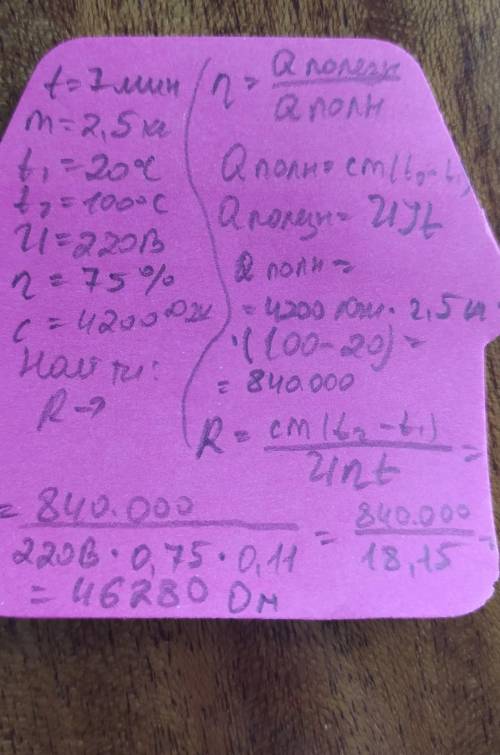 t = 7 мин
m = 2,5 кг
t₁ = 20°C
t₂ = 100°C
U = 220В
η = 75%
c = 4200 Дж
Найти:
R →
η = Qполезн / Qполн
Qполн = cm(t₂ - t₁)
Qполезн = UIt
Qполн =
= 4200 Дж · 2,5 кг ·
· (100 - 20) =
= 840.000
R = cm(t₂ - t₁) / Uηt =
= 840.000 / 220В · 0,75 · 0,11 = 840.000 / 18,15 =
= 46280 Ом